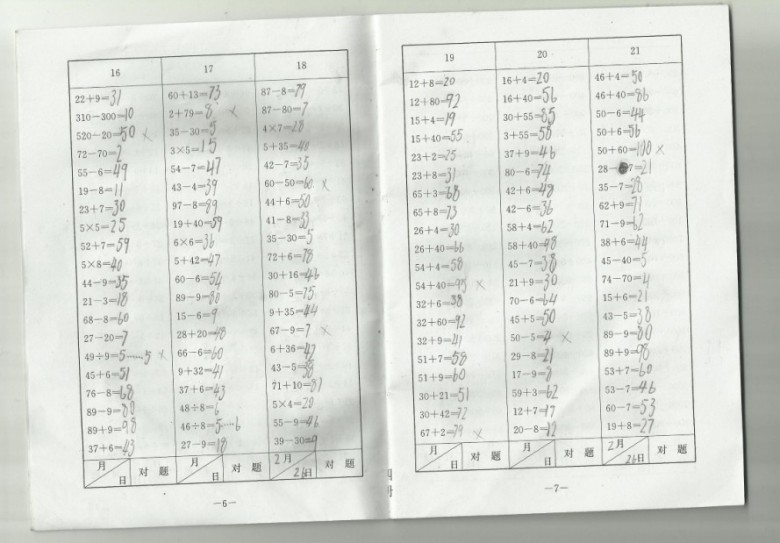 16
22+9=31
310-300=10
520-20=50 ×
72-70=2
55-6=49
19-8=11
23+7=30
5×5=25
52+7=59
5×8=40
44-9=35
21-3=18
68-8=60
27-20=7
49+9=5……5 ×
45+6=51
76-8=68
89-9=80
89+9=98
37+6=43
月 日 对 题
17
60+13=73
2+79=8 ×
35-30=5
3×5=15
54-7=47
43-4=39
97-8=89
19+40=59
6×6=36
5+42=47
60-6=54
89-9=80
15-6=9
28+20=48
66-6=60
9+32=41
37+6=43
48÷8=6
46÷8=5…6
27-9=18
月 日 对 题
18
87-8=79
87-80=7
4×7=28
5+35=40
42-7=35
60-50=60 ×
44+6=50
41-8=33
35-30=5
72+6=78
30+16=46
80-5=75
9+35=44
67-9=7 ×
6+36=42
43-5=38
71+10=81
5×4=20
55-9=46
39-30=9
2月 26日 对 题
—6—
19
12+8=20
12+80=92
15+4=19
15+40=55
23+2=25
23+8=31
65+3=68
65+8=73
26+4=30
26+40=66
54+4=58
54+40=95 ×
32+6=38
32+60=92
32+9=41
51+7=58
51+9=60
30+21=51
30+42=72
67+2=79 ×
月 日 对 题
20
16+4=20
16+40=56
30+55=85
3+55=58
37+9=46
80-6=74
42+6=48
42-6=36
58+4=62
58+40=98
45-7=38
21+9=30
70-6=64
45+5=50
50-5=4 ×
29-8=21
17-9=8
59+3=62
12+7=17
20-8=12
月 日 对 题
21
46+4=50
46+40=86
50-6=44
50+6=56
50+60=100 ×
28-7=21
35-7=28
62+9=71
71-9=62
38+6=44
45-40=5
74-70=4
15+6=21
43-5=38
89-9=80
89+9=98
53+7=60
53-7=46
60-7=53
19+8=27
2月 26日 对 题
—7—